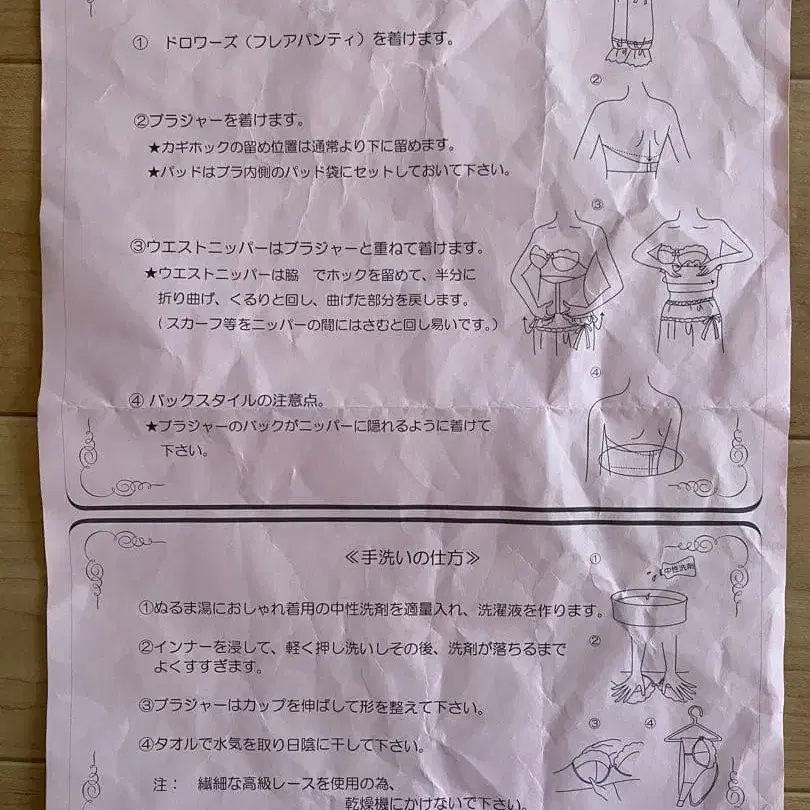 ① ドロワーズ（フレアパンティ）を着けます。
②
②ブラジャーを着けます。
★カギホックの留め位置は通常より下に留めます。
★パッドはブラ内側のパッド袋にセットしておいて下さい。
③
③ウエストニッパーはブラジャーと重ねて着けます。
★ウエストニッパーは脇　でホックを留めて、半分に
折り曲げ、くるりと回し、曲げた部分を戻します。
（スカーフ等をニッパーの間にはさむと回し易いです。）
④
④ バックスタイルの注意点。
★ブラジャーのバックがニッパーに隠れるように着けて
下さい。
≪手洗いの仕方≫
①
中性洗剤
①ぬるま湯におしゃれ着用の中性洗剤を適量入れ、洗濯液を作ります。
②
②インナーを浸して、軽く押し洗いしその後、洗剤が落ちるまで
よくすすぎます。
③ブラジャーはカップを伸ばして形を整えて下さい。
③
④
④タオルで水気を取り日陰に干して下さい。
注： 繊細な高級レースを使用の為、
乾燥機にかけないで下さい。